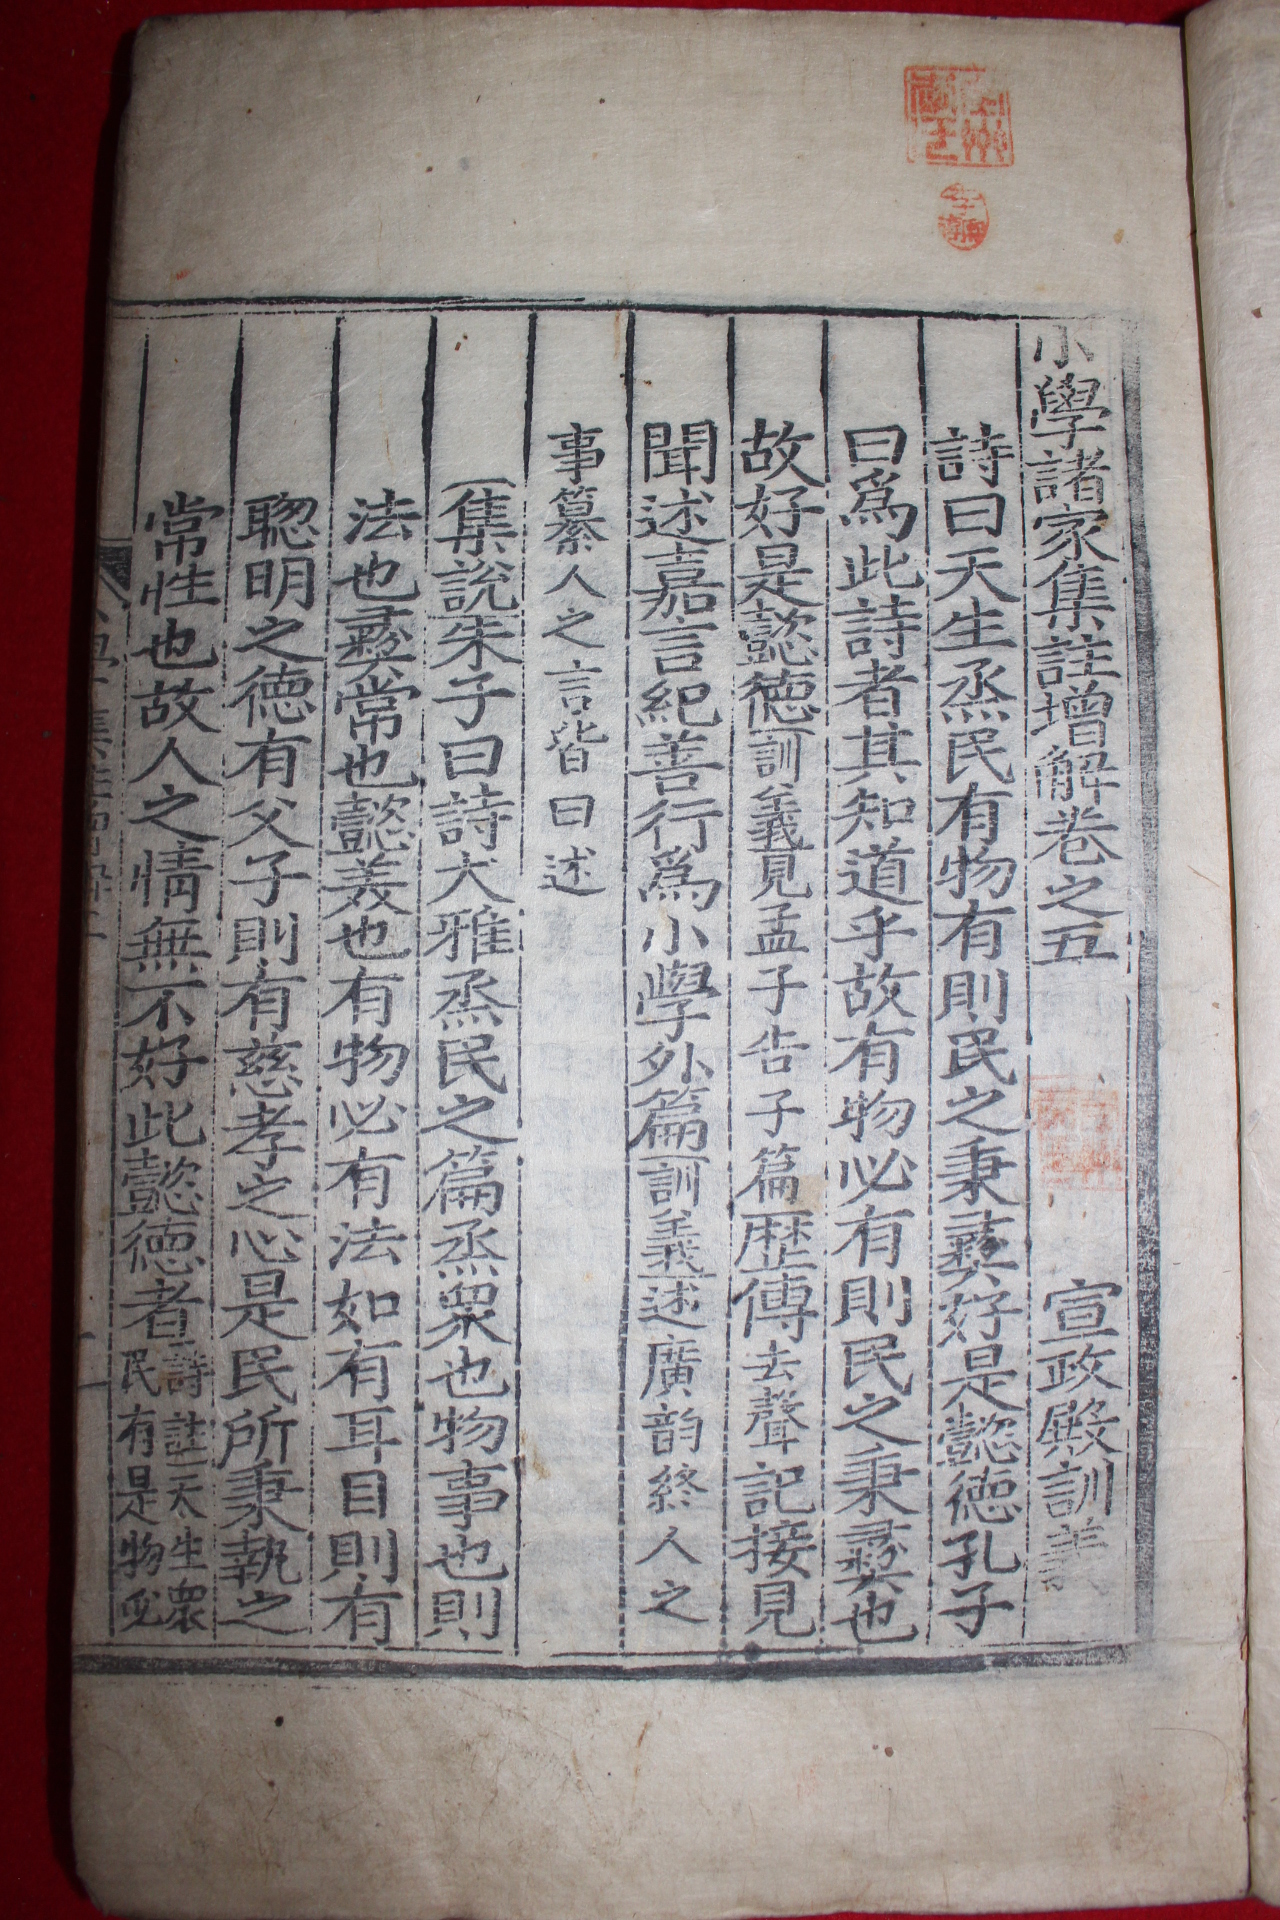 小學諸家集註增解卷之五 宣政殿訓義
詩曰天生烝民有物有則民之秉彝好是懿德孔子
曰爲此詩者其知道乎故有物必有則民之秉彝也
故好是懿德訓義見孟子告子篇歷傳去聲記接見
聞述嘉言紀善行爲小學外篇訓義述廣韵終人之
事纂人之言皆曰述
集說朱子曰詩大雅烝民之篇烝衆也物事也則
法也彝常也懿美也有物必有法如有耳目則有
聰明之德有父子則有慈孝之心是民所秉執之
常性也故人之情無不好此懿德者詩註天生衆
民有是物必